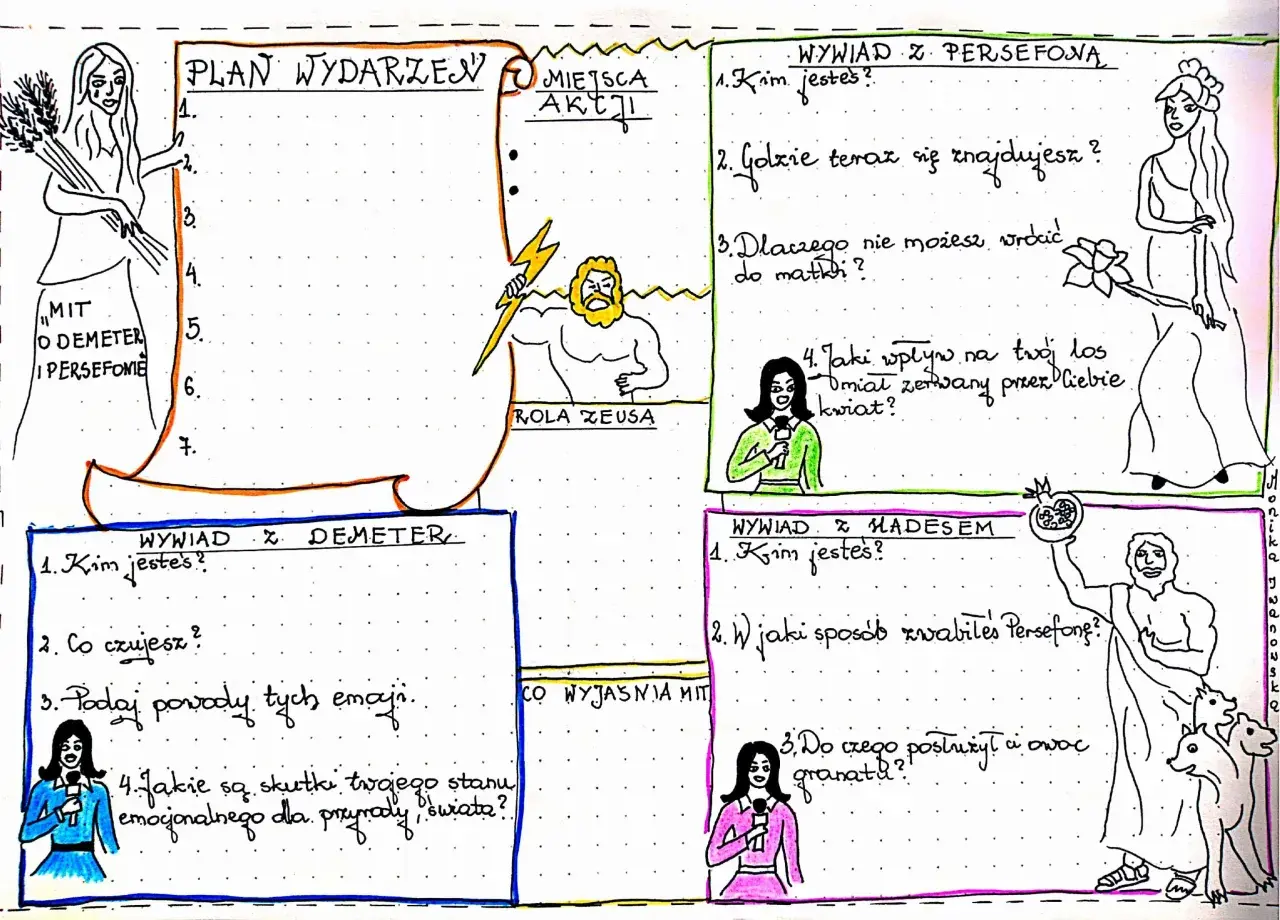 PLAN WYDARZEŃ
1.
2.
3.
4.
5.
6.
7.
„MIT
O DEMETER
I PERSEFONIE
MIEJSCA
AKCJI
ROLA ZEUSA
CO WYJAŚNIA MIT
WYWIAD Z PERSEFONĄ
1. Kim jesteś?
2. Gdzie teraz się znajdujesz?
3. Dlaczego nie możesz wrócić
do matki?
4. Jaki wpływ na twój los
miał zerwany przez Ciebie
kwiat?
WYWIAD Z DEMETER
1. Kim jesteś?
2. Co czujesz?
3. Podaj powody tych emocji.
4. Jakie są skutki twojego stanu
emocjonalnego dla przyrody, świata?
WYWIAD Z HADESEM
1. Kim jesteś?
2. W jaki sposób zwabiłeś Persefonę?
3. Do czego posłużył ci owoc
granatu?
Monika Iwanowska